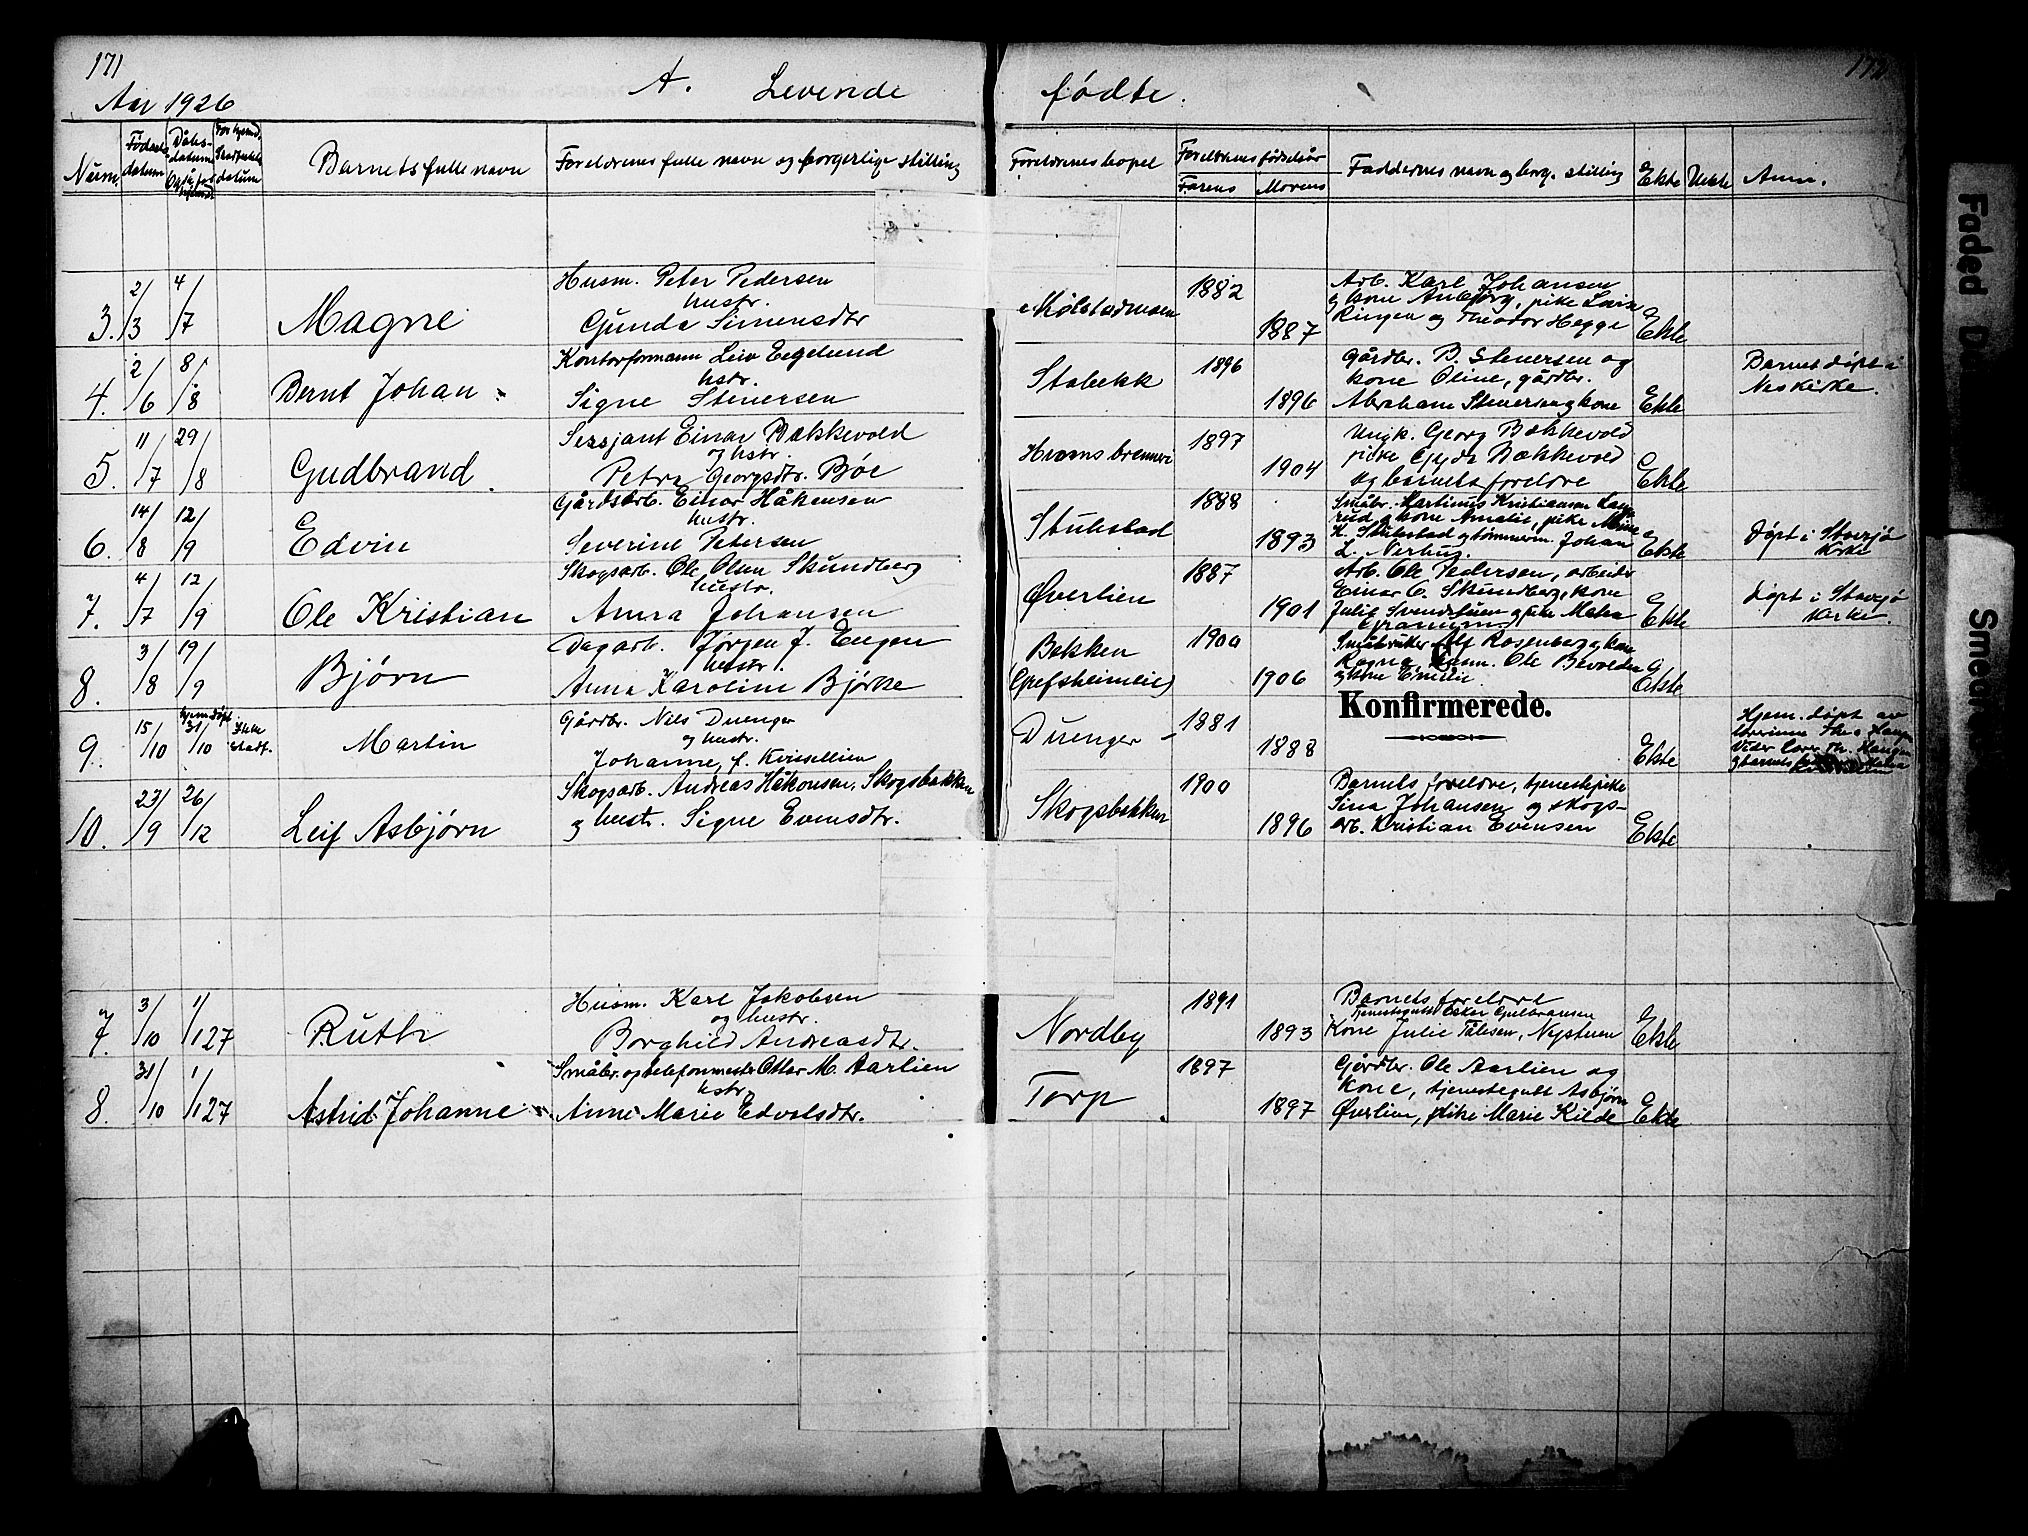 171
172
Aar 1926
A. Levende fødte.
Num.
Fødselsdatum
Dåbsdatum
datum
Barnets fulle navn
Foreldrenes fulle navn og borgerlige stilling
Foreldrenes bopel
Foreldrenes fødselsår
Farens
Morens
Faddernes navn og borg. stilling
Ekte
Uekte
Anm.
3. 2/3 4/7 Magne
Husm. Peter Pedersen
hustr.
Gunda Simensdtr
Mølstadmoen
1882
1887
Arb. Karl Johansen
og kone Anbjørg, pike Lovise
Ringen og Theodor Hegge
Ekte
4. 2/6 8/8 Bernt Johan
Kontorformann Leiv Egelund
hstr.
Signe Stenersen
Stabekk
1896
1896
Gårdbr. B. Stenersen og
kone Oline, gårdbr.
Abraham Stenersen og kone
Ekte
Barnet døpt i
Nes kirke.
5. 11/7 29/8 Gudbrand.
Sersjant Einar Bækkevold
og hstr.
Petra Georgsdtr. Bøe
Hroms brenneri
1897
1904
Ungk. Georg Bækkevold
pike Gyda Bækkevold
og barnets foreldre
Ekte
6. 14/8 12/9 Edvin
Gårdsarb. Einar Håkensen
hustr.
Severine Petersen
Stuhstad
1888
1893
Småbr. Martinus Kristiansen
rud og kone Amalie, pike
K. Stuhstad og tømmerm. Johan
L. Nerhug.
Ekte
Døpt i Stavsjø
Kirke
7. 4/7 12/9 Ole Kristian
Skogsarb. Ole Olsen Skundberg
hustr.
Anna Johansen
Øverlien
1887
1901
Arb. Ole Pedersen, arbeider
Einar O. Skundberg, kone
Julie Svendstuen og pike Mathea
Ekte
Døpt i Stavsjø
Kirke.
8. 3/8 19/9 Bjørn
Dagarb. Jørgen J. Engen
hustr.
Anna Karoline Bjørke
Bakken
(Gjefsheimeie)
1900
1906
Småbruker Alf Rosenberg og kone
Ragna, Husm. Ole Bævolden
og kone Emelie
Ekte
C.
Konfirmerede.
9. 15/10 hjemdøpt 31/10 Ikke stadf. Martin
Gårdbr. Nils Dverger
og hustr.
Johanne, f. Kvisellien
Dverger
1881
1888
Ekte
Hjem. døpt av
10. 23/9 26/12 Leif Asbjørn
Skogsarb. Andreas Håkonsen, Skogsbakken
og hustr. Signe Evensdtr.
Skogsbakken
1900
1896
Barnets foreldre, tjenestepike
Sina Johansen og skogs-
arb. Kristian Evensen
Ekte
7. 3/10 1/1 27 Ruth
Husm. Karl Jakobsen
og hustr.
Borghild Andreasdtr.
Nordby
1891
1893
Barnets foreldre
Kone Julie Tollefsen, Nystuen
Ekte
8. 31/10 1/1 27 Astrid Johanne
Småbr. og telefonmestr Ottar M. Aarlien
hstr.
Anne Marie Edvalsdtr.
Torp
1897
1897
Gårdbr. Ole Aarlien og
kone, tjenestegutt Asbjørn
Øverlien, pike Marie Kilde
Ekte
Faded
Smear